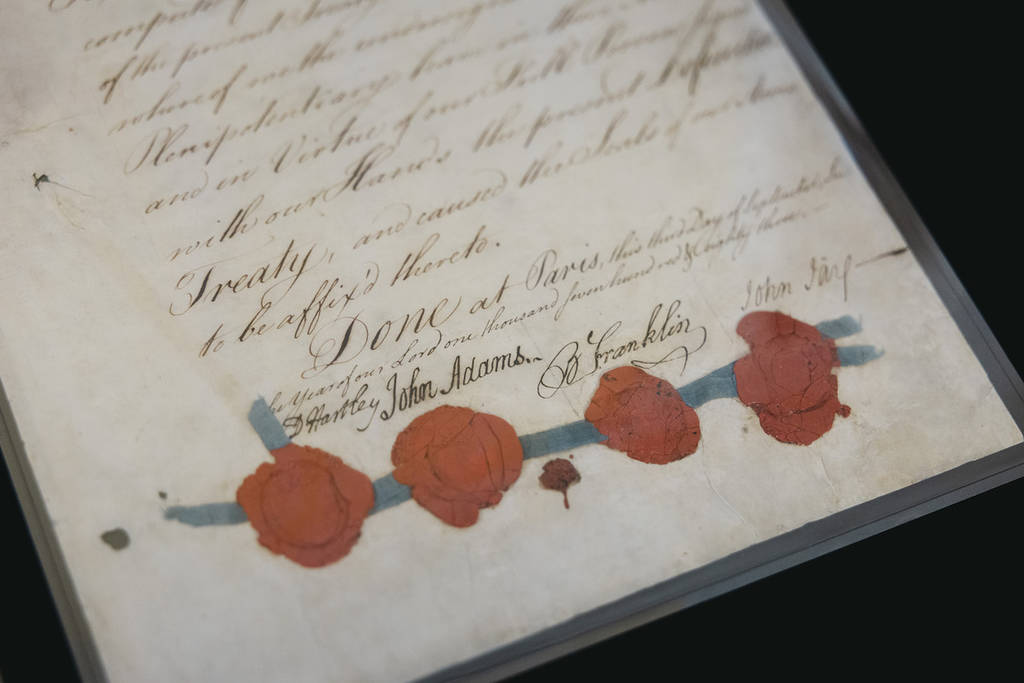 of the present Treaty
whereof we the undersigned
Plenipotentiary have in their
and in Virtue of our Full Powers
with our Hands the present Definitive
Treaty, and caused the Seals of our Arms
to be affix'd thereto.
Done at Paris, this third Day of September, In
the Year of our Lord one thousand seven hundred & Eighty three.
D Hartley John Adams. B Franklin John Jay